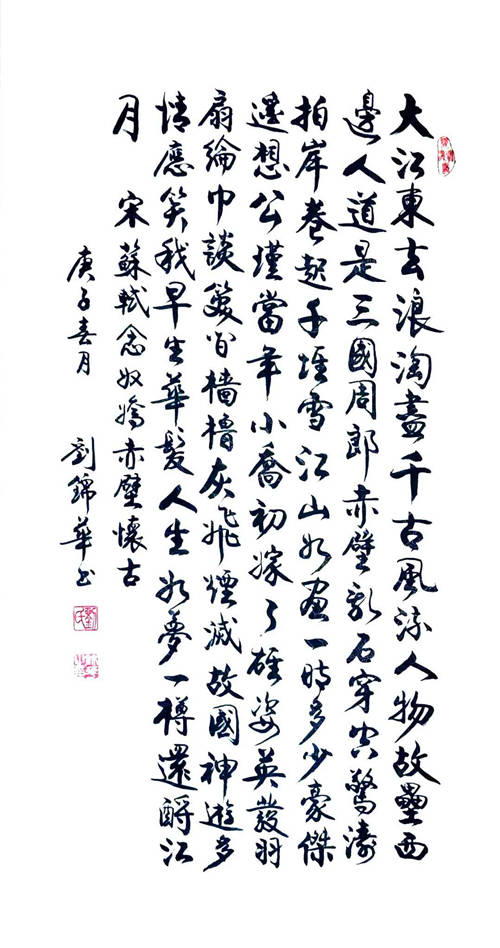 大江東去浪淘盡千古風流人物故壘西
邊人道是三國周郎赤壁亂石穿空驚濤
拍岸卷起千堆雪江山如畫一時多少豪傑
遙想公瑾當年小喬初嫁了雄姿英發羽
扇綸巾談笑間檣櫓灰飛煙滅故國神遊多
情應笑我早生華髮人生如夢一樽還酹江
月 宋蘇軾念奴嬌赤壁懷古
庚子春月 劉錦華书